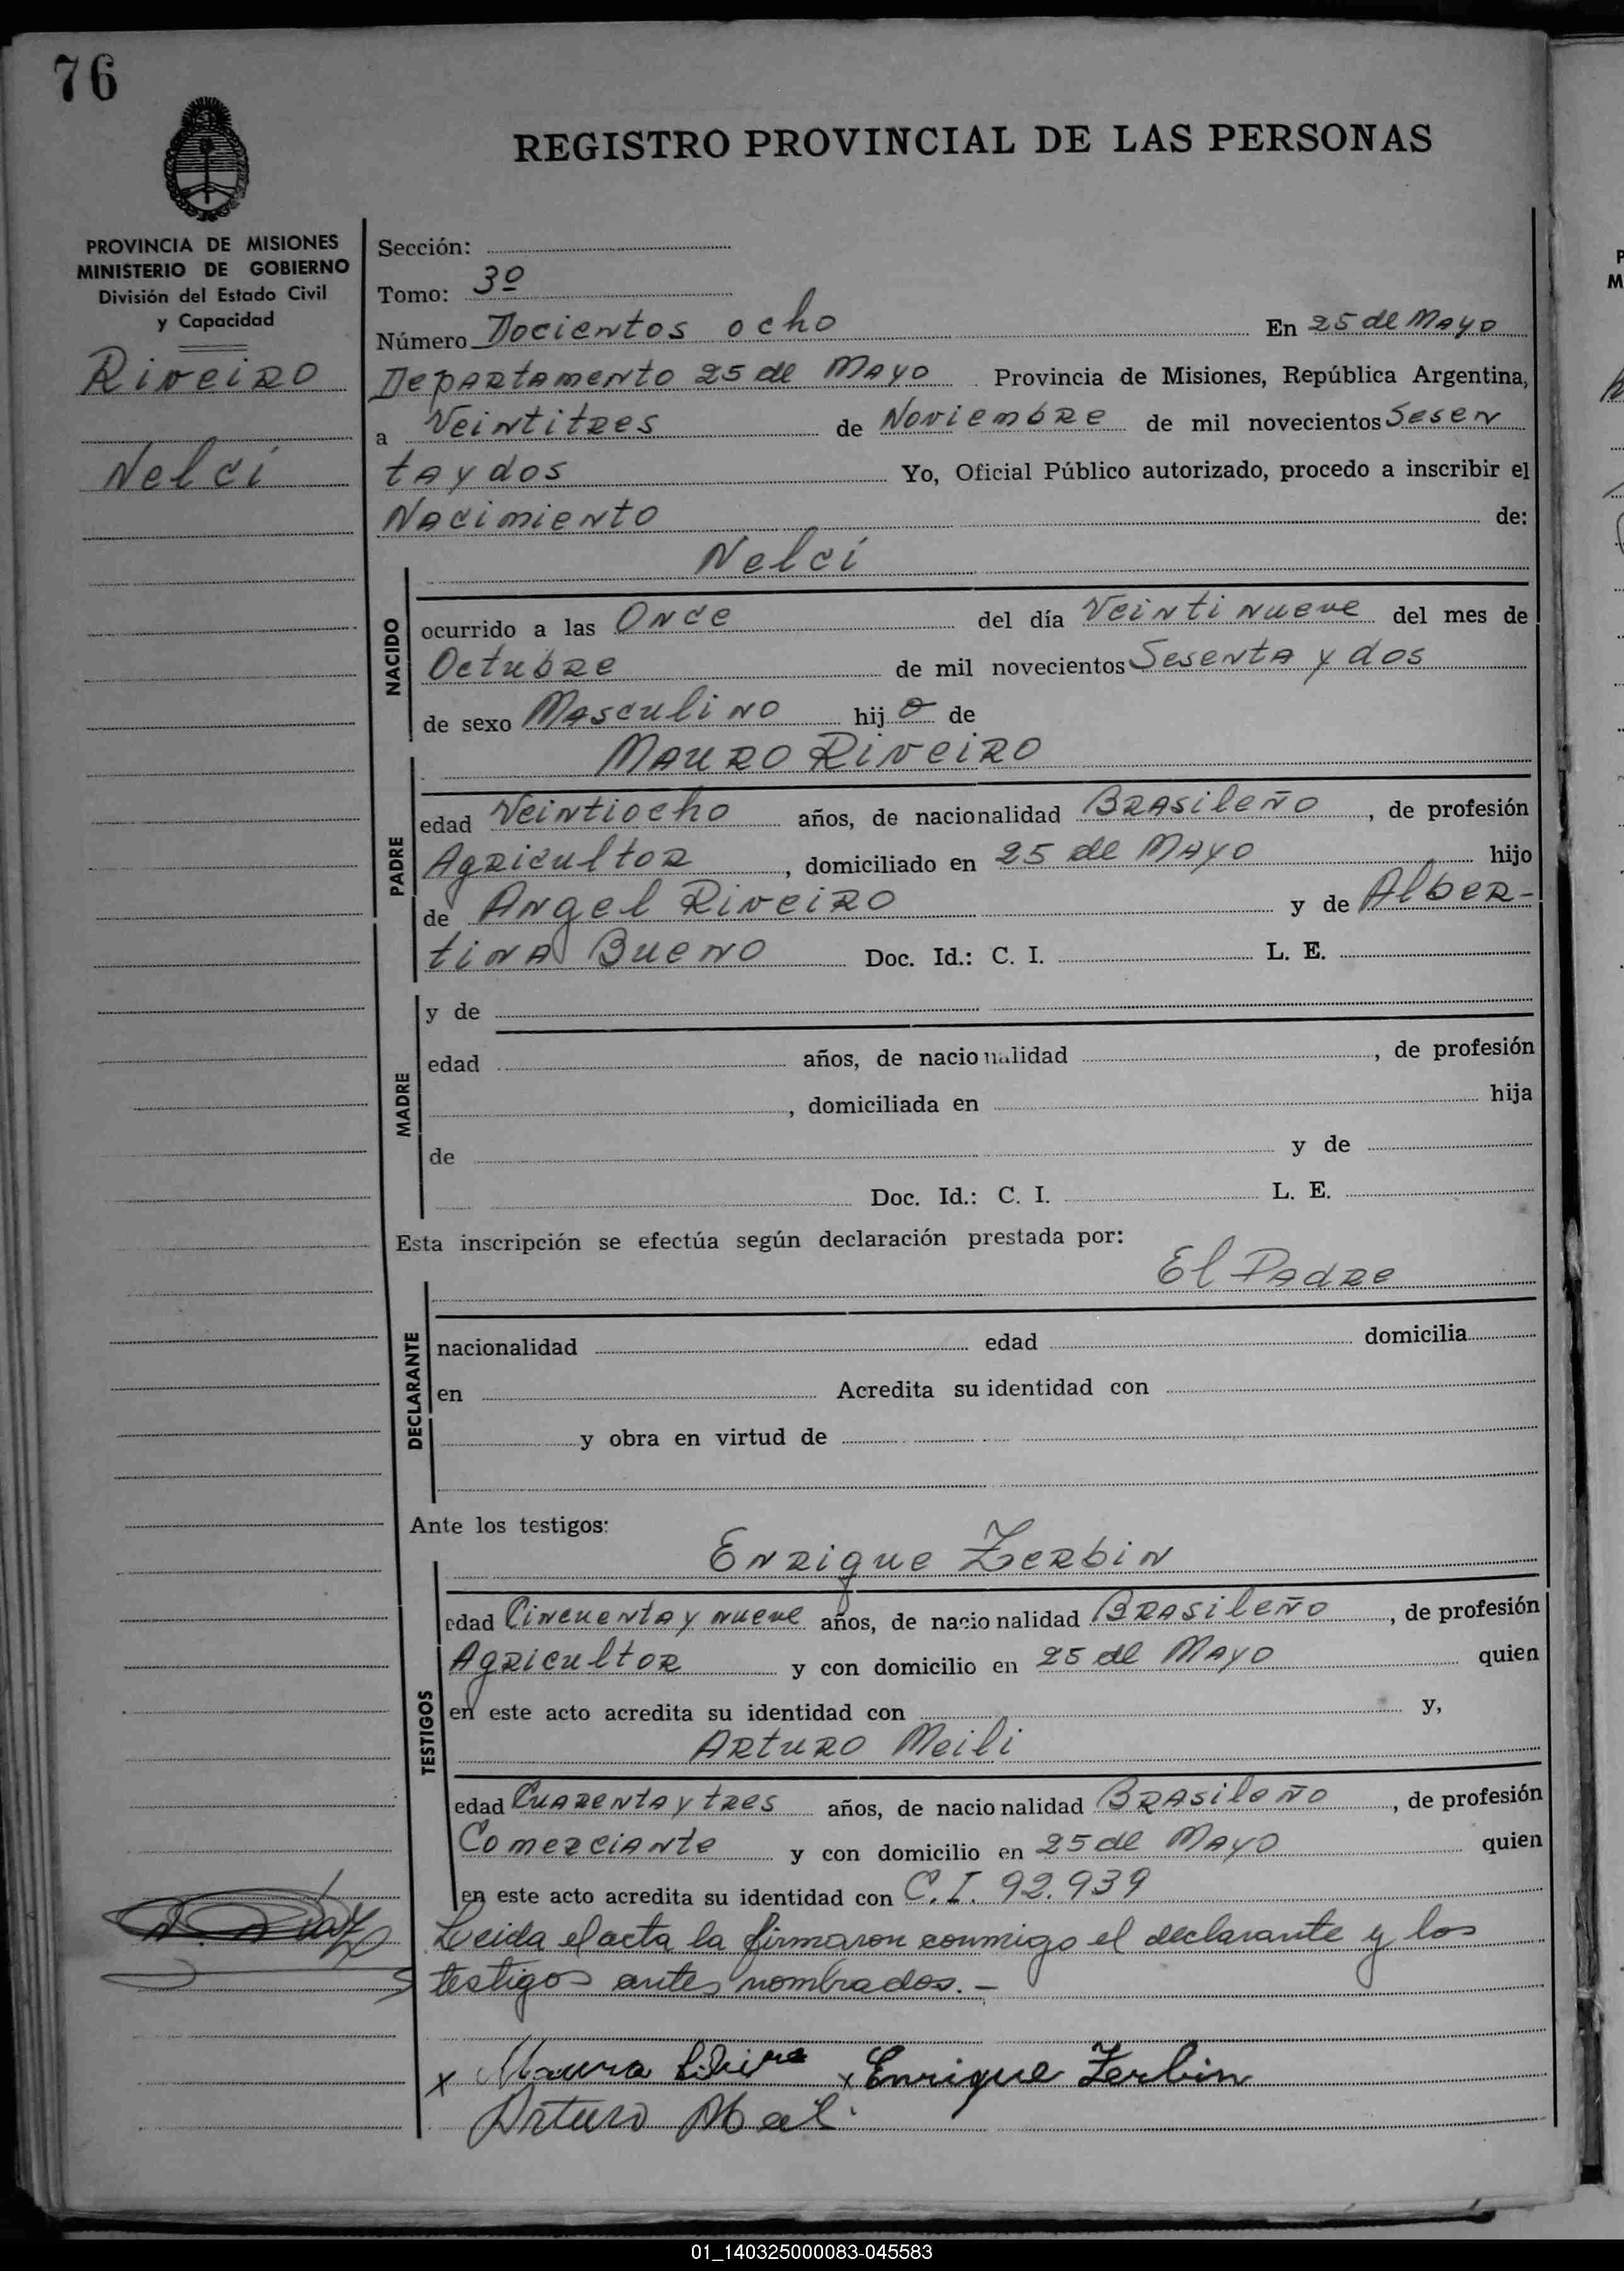 76
REGISTRO PROVINCIAL DE LAS PERSONAS
PROVINCIA DE MISIONES
MINISTERIO DE GOBIERNO
División del Estado Civil
y Capacidad
Riveiro
Nelci
Sección:
Tomo: 3º
Número Docientos ocho En 25 de Mayo
Departamento 25 de Mayo Provincia de Misiones, República Argentina,
a Veintitres de Noviembre de mil novecientos Sesen
ta y dos Yo, Oficial Público autorizado, procedo a inscribir el
Nacimiento de:
Nelci
NACIDO
ocurrido a las Once del día Veintinueve del mes de
Octubre de mil novecientos Sesenta y dos
de sexo Masculino hijo de
Mauro Riveiro
PADRE
edad Veintiocho años, de nacionalidad Brasileño, de profesión
Agricultor, domiciliado en 25 de Mayo hijo
de Angel Riveiro y de Alber-
tina Bueno Doc. Id.: C. I. L. E.
MADRE
y de
edad años, de nacionalidad , de profesión
, domiciliada en hija
de y de
Doc. Id.: C. I. L. E.
Esta inscripción se efectúa según declaración prestada por:
El Padre
DECLARANTE
nacionalidad edad domicilia
en Acredita su identidad con
y obra en virtud de
Ante los testigos:
Enrique Zerbin
TESTIGOS
edad Cincuenta y nueve años, de nacionalidad Brasileño, de profesión
Agricultor y con domicilio en 25 de Mayo quien
en este acto acredita su identidad con y,
Arturo Meili
edad Cuarenta y tres años, de nacionalidad Brasileño, de profesión
Comerciante y con domicilio en 25 de Mayo quien
en este acto acredita su identidad con C.I. 92.939
Leida el acta la firmaron conmigo el declarante y los
testigos antes nombrados.-
x Mauro x Enrique Zerbin
Arturo
01_140325000083-045583